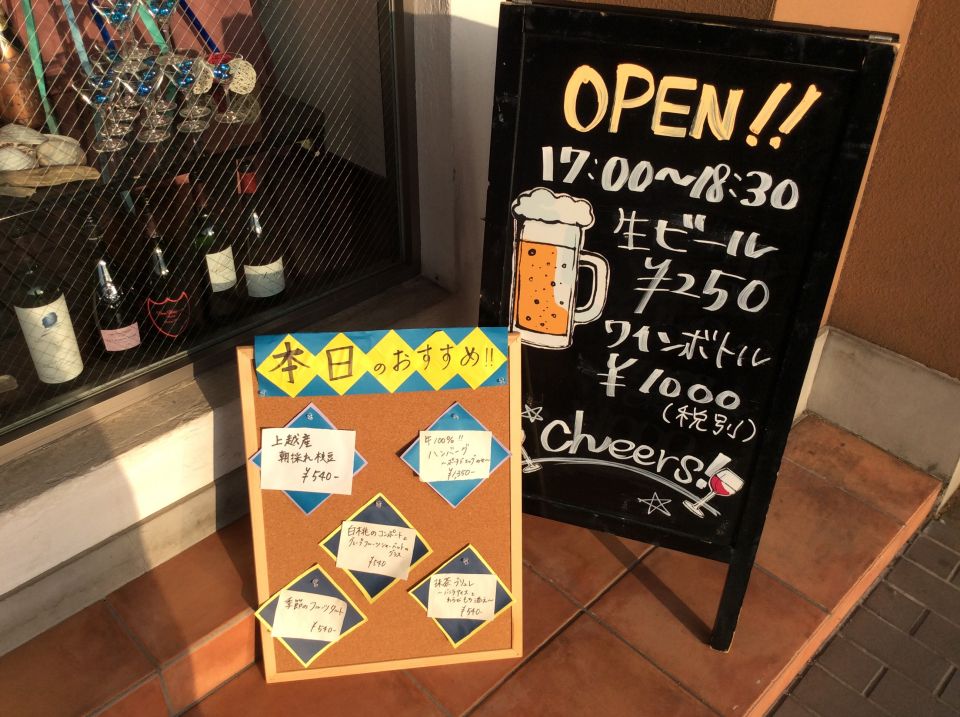 OPEN!!
17:00~18:30
生ビール
¥250
ワインボトル
¥1000
(税別)
cheers!
本日のおすすめ!!
上越産
朝採れ枝豆
¥540-
牛100%!!
ハンバーグ
¥1,350-
白桃のコンポートと
グレープフルーツシャーベットの
グラス
¥540
季節のフルーツタルト
¥540-
抹茶テリーヌ
¥540-